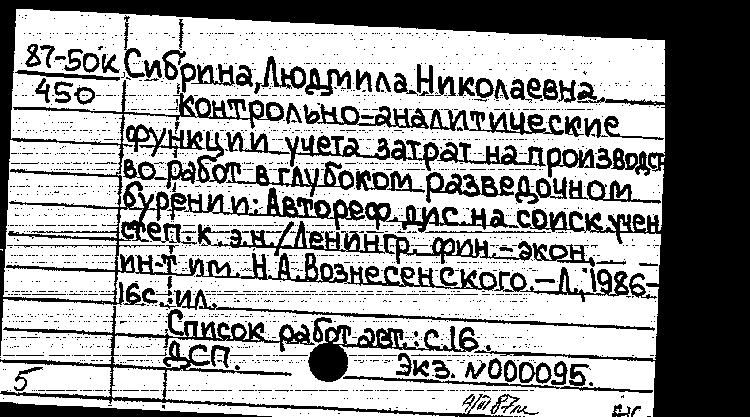 87-50к Сибрина, Людмила Николаевна.
450 контрольно-аналитические
функции учета затрат на производст
во работ в глубоком разведочном
бурении: Автореф. дис. на соиск. учен
степ. к. э. н. / Ленингр. фин.-экон.
ин-т им. Н.А. Вознесенского. — Л., 1986.-
16с. ил.
Список работ авт.: с.16.
ДСП. Экз. N000095.
5